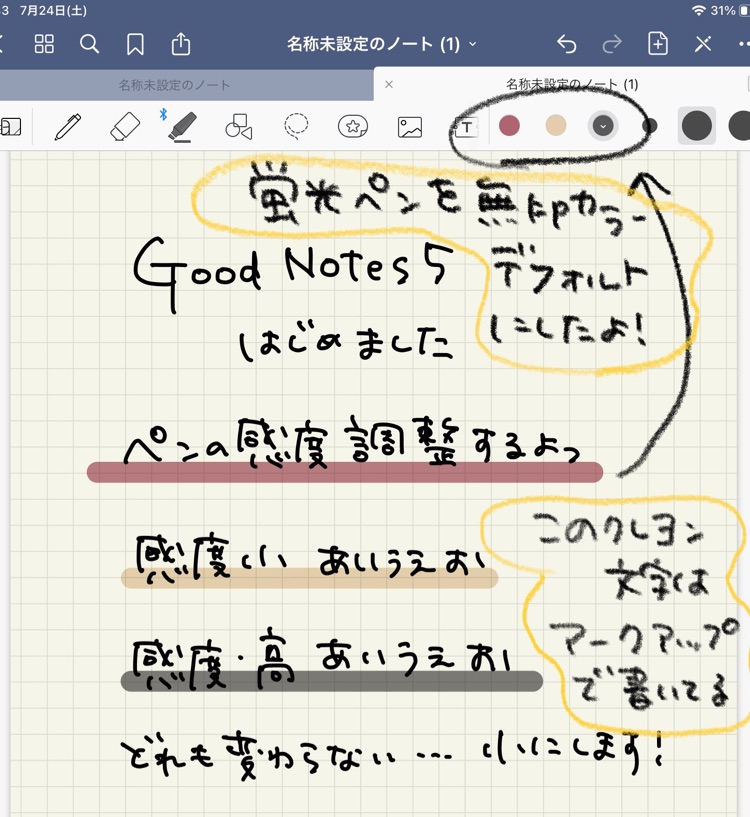 7月24日(土)
31%
名称未設定のノート (1)
名称未設定のノート
名称未設定のノート (1)
T
蛍光ペンを無印カラー
デフォルト
にしたよ!
Good Notes 5
はじめました
ペンの感度調整するよっ
感度小 あいうえお
感度・高 あいうえお
どれも変わらない… 小にします!
このクレヨン
文字は
マークアップ
で書いてる